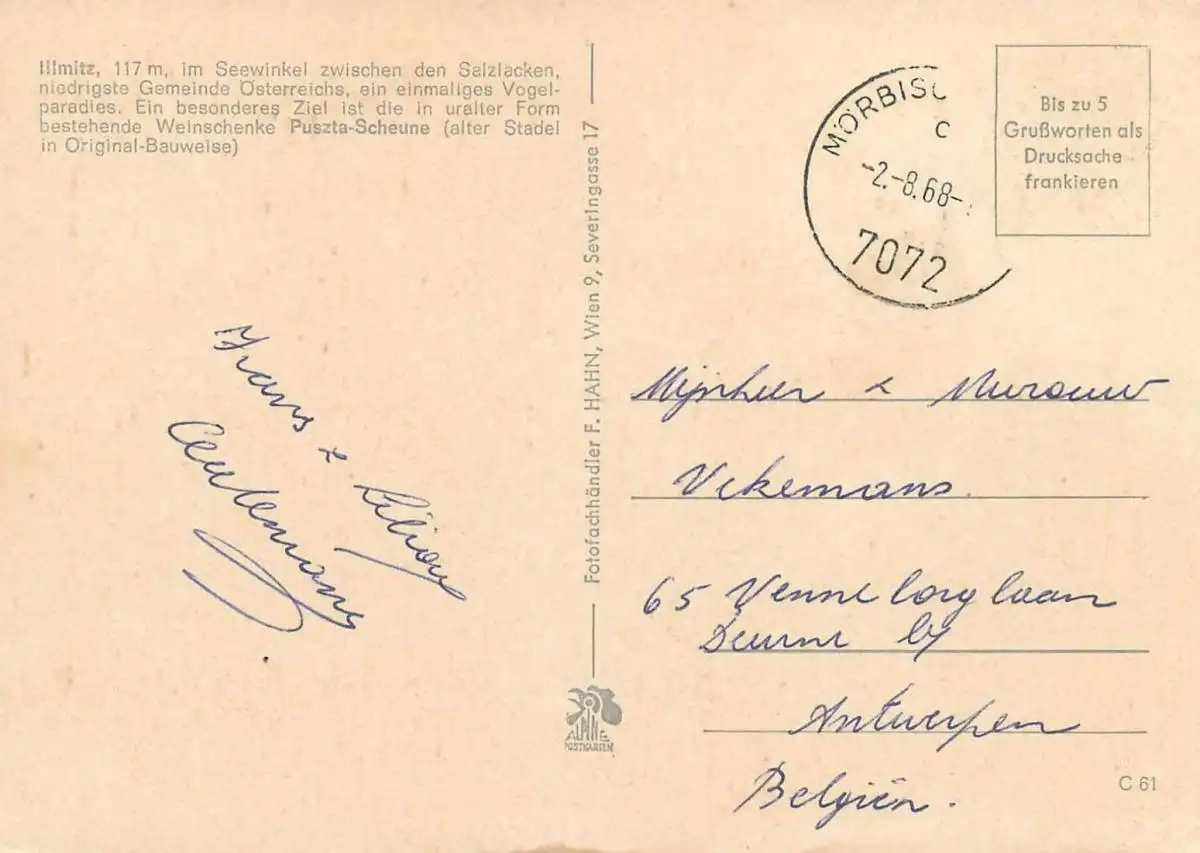 Illmitz, 117 m, im Seewinkel zwischen den Salzlacken,
niedrigste Gemeinde Österreichs, ein einmaliges Vogel-
paradies. Ein besonderes Ziel ist die in uralter Form
bestehende Weinschenke Puszta-Scheune (alter Stadel
in Original-Bauweise)
Frans & Liliane
Ceulemans
Fotofachhändler F. HAHN, Wien 9, Severingasse 17
POSTKARTEN
MÖRBISC
C
-2.-8.68-
7072
Bis zu 5
Grußworten als
Drucksache
frankieren
Mijnheer & Mevrouw
Uckemans
65 Venneborglaan
Deurne by
Antwerpen
Belgiën.
C 61